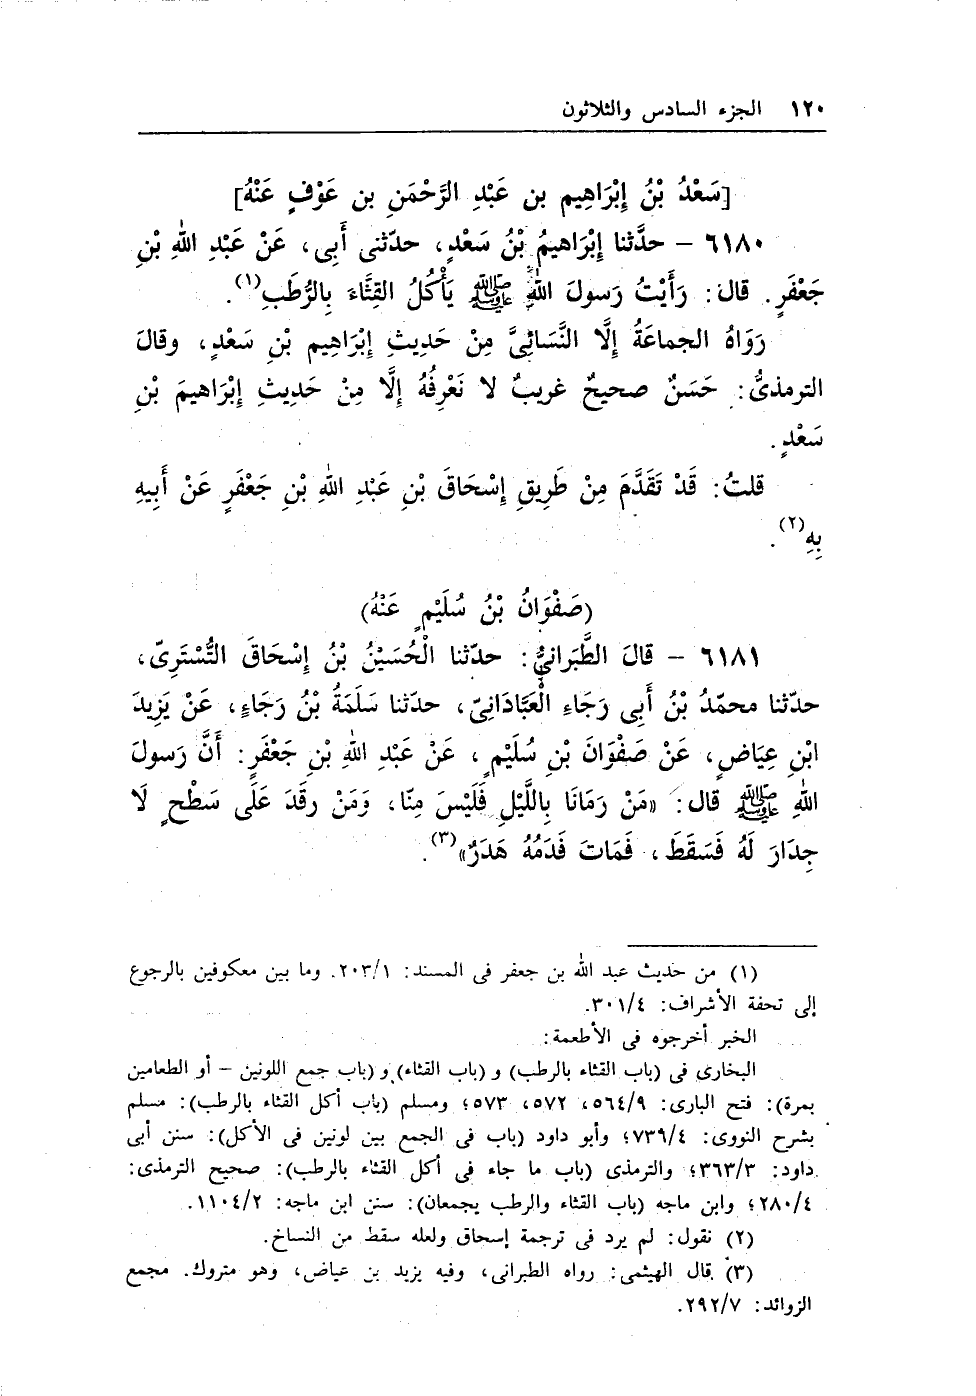 ١٢٠ الجزء السادس والثلاثون
[سَعْدُ بْنُ إِبْرَاهِيم بن عَبْدِ الرَّحْمَنِ بن عَوْفٍ عَنْهُ]
٦١٨٠ – حدَّثنا إِبْرَاهيمُ بْنُ سَعْدٍ، حدّثنى أَبِى، عَنْ عَبْدِ اللهِ بْنِ
جَعْفَرٍ. قال: رَأَيْتُ رَسولَ اللهِ ﷺ يَأْكُلُ القِثَّاءَ بِالرُّطَبِ(١).
رَوَاهُ الجماعَةُ إِلَّا النَّسَائِىَّ مِنْ حَدِيثِ إِبْرَاهِيم بْنِ سَعْدٍ، وقالَ
الترمذىُّ: حَسَنٌ صحيحٌ غريبٌ لا نَعْرِفُهُ إِلَّا مِنْ حَدِيثِ إِبْرَاهيمَ بْنِ
سَعْدٍ.
قلتُ: قَدْ تَقَدَّمَ مِنْ طَرِيقِ إِسْحَاقَ بْنِ عَبْدِ اللهِ بْنِ جَعْفَرٍ عَنْ أَبِيهِ
بِهِ(٢).
(صَفْوَانُ بْنُ سُلَيْمٍ عَنْهُ)
٦١٨١ – قالَ الطَّبَرانىُّ: حدّثنا الْحُسَيْنُ بْنُ إِسْحَاقَ التُّسْتَرِىّ،
حدّثنا محمّدُ بْنُ أَبِى رَجَاءِ الْعَبَّادَانِىّ، حدّثنا سَلَمَةُ بْنُ رَجَاءٍ، عَنْ يَزِيدَ
ابْنِ عِيَاضٍ، عَنْ صَفْوَانَ بْنِ سُلَيْمٍ، عَنْ عَبْدِ اللهِ بْنِ جَعْفَرٍ: أَنَّ رَسولَ
اللهِ ﷺ قال: «مَنْ رَمَانَا بِاللَّيْلِ فَلَيْسَ مِنَّا، وَمَنْ رقَدَ عَلَى سَطْحٍ لَا
جِدَارَ لَهُ فَسَقَطَ، فَمَاتَ فَدَمُهُ هَدَرٌ»(٣).
(١) من حديث عبد الله بن جعفر فى المسند: ٢٠٣/١. وما بين معكوفين بالرجوع
إلى تحفة الأشراف: ٣٠١/٤.
الخبر أخرجوه فى الأطعمة:
البخارى فى (باب القثاء بالرطب) و (باب القثاء) و (باب جمع اللونين – أو الطعامين
بمرة): فتح البارى: ٥٦٤/٩، ٥٧٢، ٥٧٣؛ ومسلم (باب أكل القثاء بالرطب): مسلم
بشرح النووى: ٧٣٩/٤؛ وأبو داود (باب فى الجمع بين لونين فى الأكل): سنن أبى
داود: ٣٦٣/٣؛ والترمذى (باب ما جاء فى أكل القثاء بالرطب): صحيح الترمذى:
٢٨٠/٤؛ وابن ماجه (باب القثاء والرطب يجمعان): سنن ابن ماجه: ١١٠٤/٢.
(٢) نقول: لم يرد فى ترجمة إسحاق ولعله سقط من النساخ.
(٣) قال الهيثمى: رواه الطبرانى، وفيه يزيد بن عياض، وهو متروك. مجمع
الزوائد: ٢٩٢/٧.